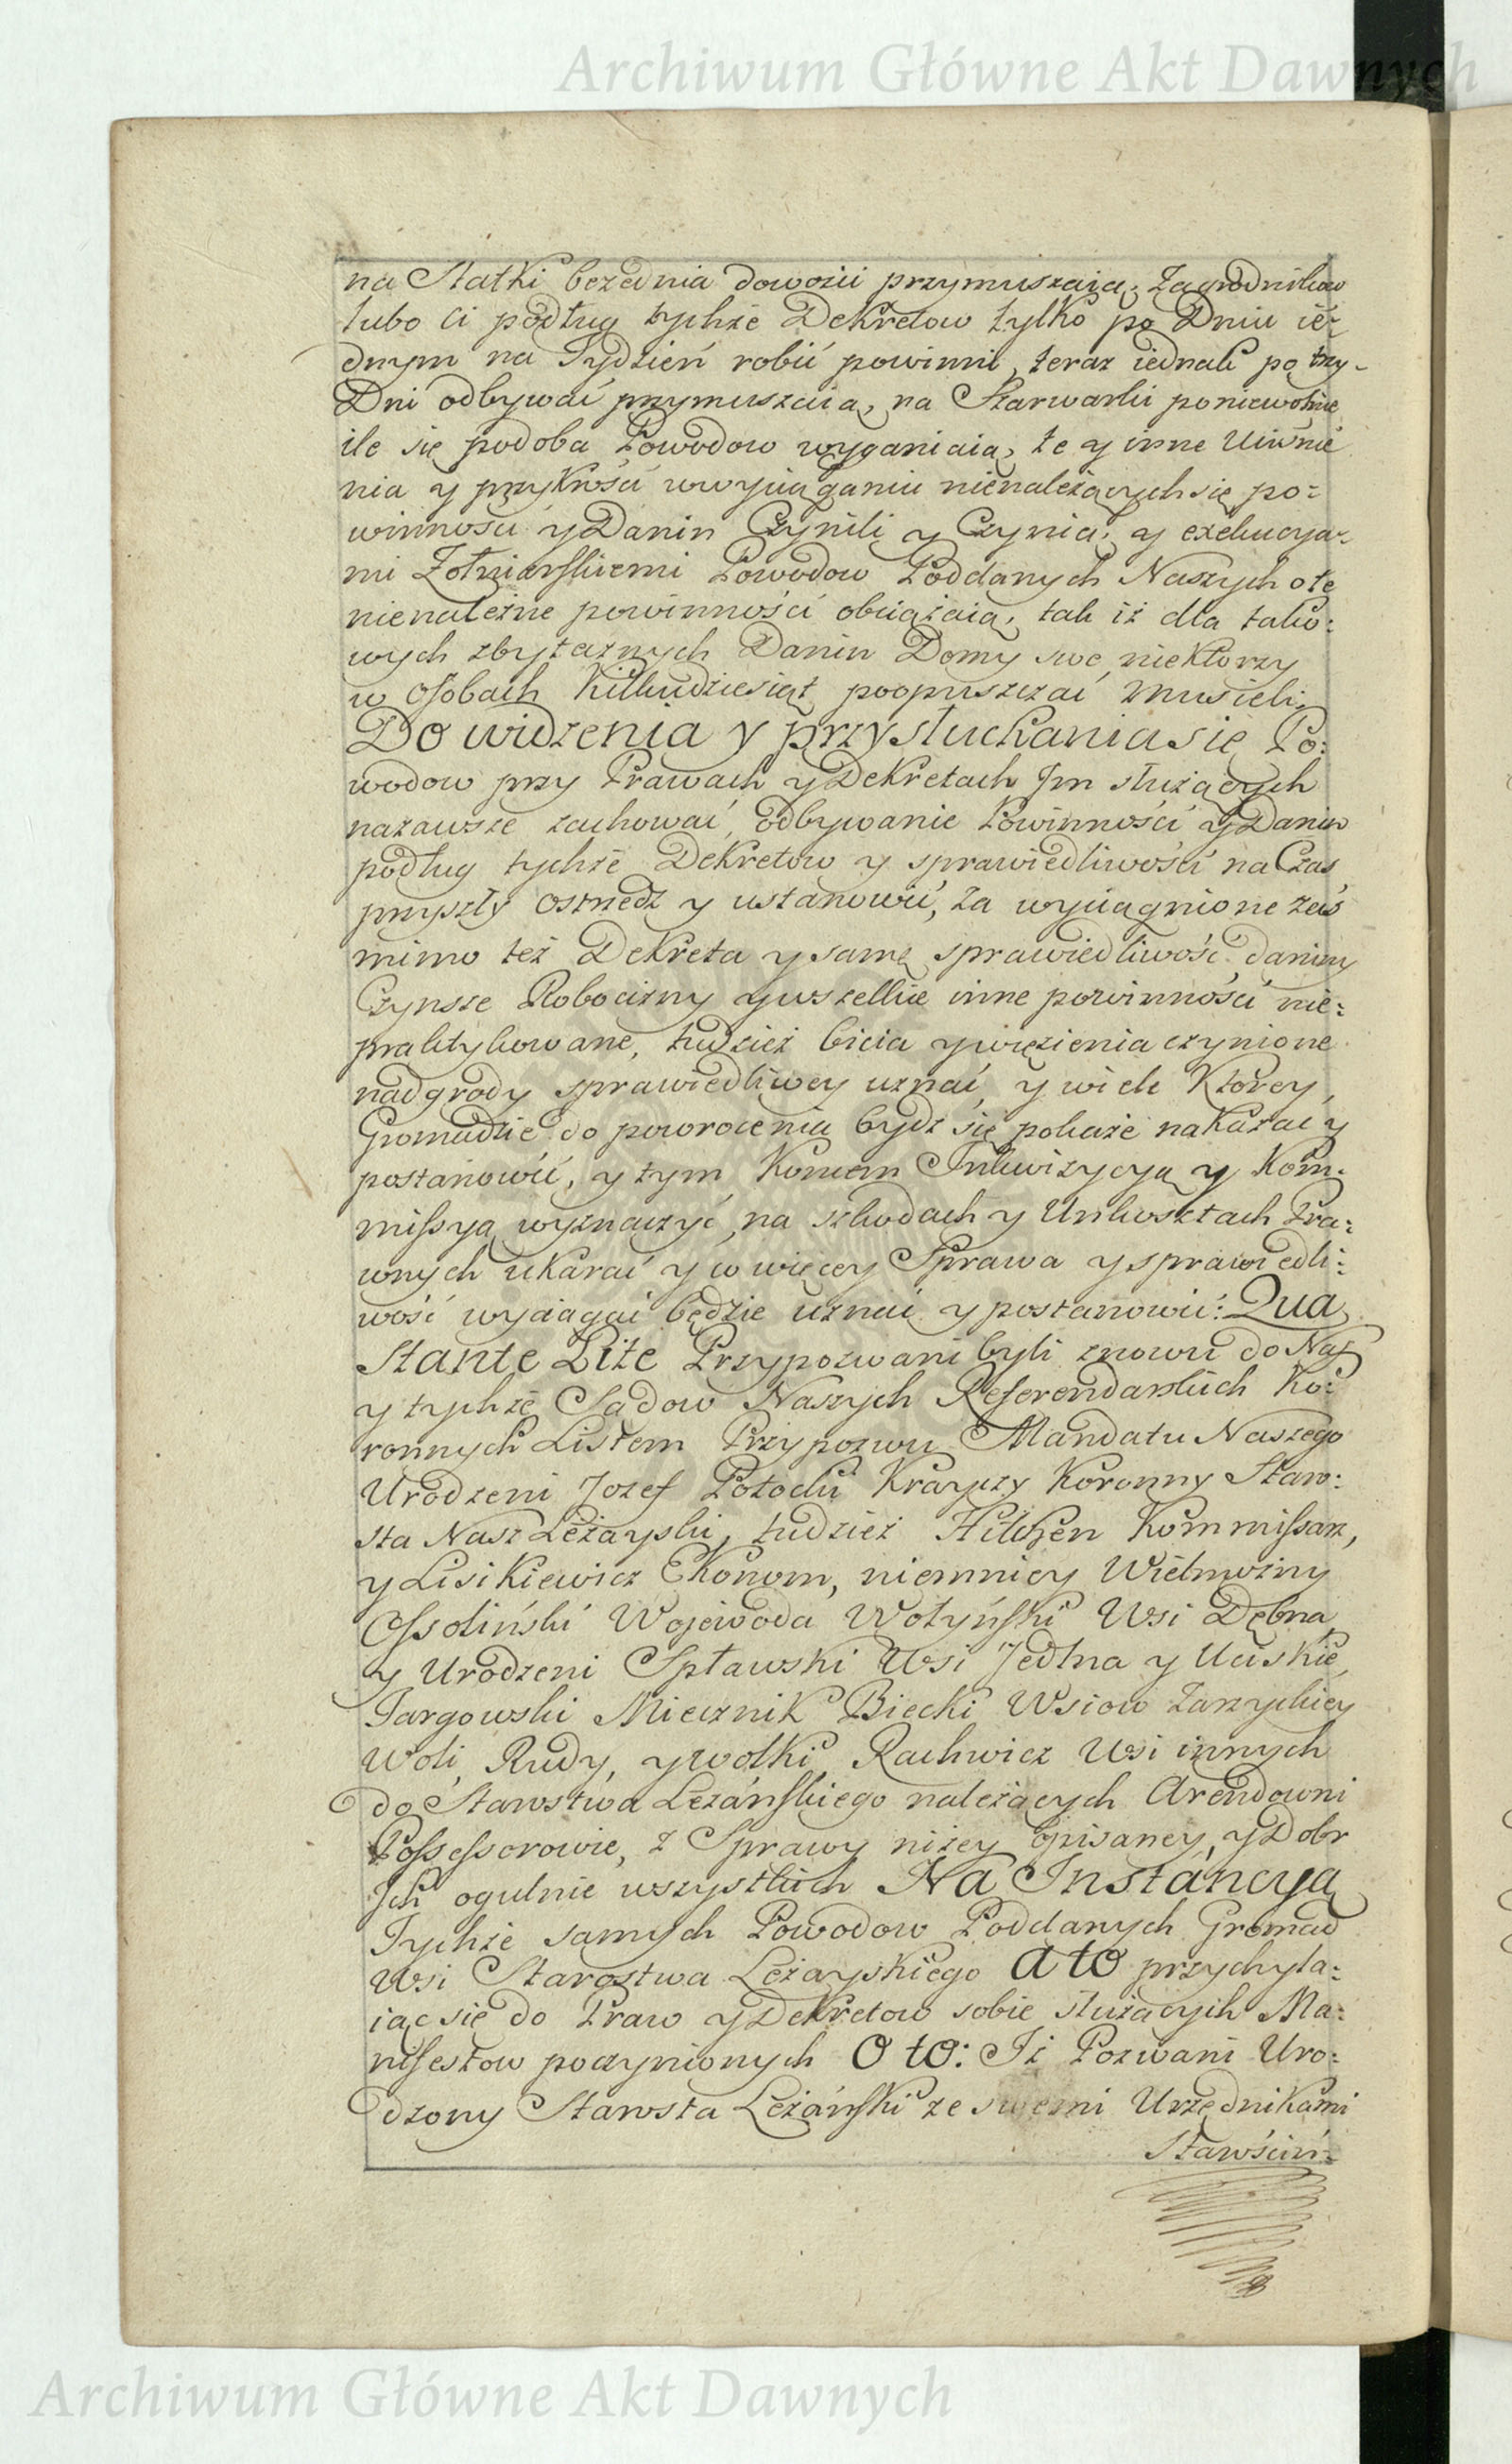 Archiwum Główne Akt Dawnych
na Statki bezednia dowozić przymuszaią, Zagrodnikow
lubo ci podług tychże Dekretow tylko po Dniu ie-
dnym na Tydzień robić powinni, teraz iednak po trzy
Dni odbywać przymuszaią, na Szarwarki poniewolnie
ile się podoba Powodow wyganiaią, te y inne Uciśnie
nia y przykrości wwyciąganiu nienależących się po:
winności y Danin Czynili y Czynią, y exekucya-
mi Zołnierskiemi Powodow Poddanych Naszych o te
nienależne powinności obciążaią, tak iż dla tako:
wych zbytecznych Danin Domy swe niektorzy
w Osobach Kilkudziesiąt poopuszczać musieli,
Do widzenia y przysłuchania się Po:
wodow przy Prawach y Dekretach Jm służących
nazawsze zachować, odbywanie Powinności y Danin
podług tychże Dekretow y sprawiedliwości na Czas
przyszły ostrzedz y ustanowić, za wyciągnione zaś
mimo też Dekreta y samę sprawiedliwość daniny
Czynsze Robocizny y wszelkie inne powinności nie:
praktykowane, tudzież bicia y więzienia czynione
nadgrody sprawiedliwey uznać, y wiele Ktorey
Gromadzie do powrocenia bydź się pokaże nakazać y
postanowić, y tym Koncem Inkwizycyą y Kom:
missyą wyznaczyć, na szkodach y Unkosztach Pra:
wnych ukarać y co więcey Sprawa y sprawiedli:
wość wyciągać będzie uznać y postanowić: Qua
Stante Lite Przypozwani byli znowu do Nas
y tychże Sądow Naszych Referendarskich Ko:
ronnych Listem Przypozwu Mandatu Naszego
Urodzeni Jozef Potocki Krayczy Koronny Staro:
sta Nasz Leżayski, tudzież Hilchen Kommissarz,
y Lisikiewicz Ekonom, niemniey Wielmożny
Ossoliński Wojewoda Wołyński Wsi Dębna
y Urodzeni Spławski Wsi Jedlna y Uciskie,
Targowski Miecznik Biecki Wsiow Zarzyckiey
Woli, Rudy, y Wolki, Rachwicz Wsi innych
do Starostwa Leżańskiego należących Arendowni
Possessorowie, z Sprawy niżey opisaney, y Dobr
Jch ogulnie wszystkich Na Instancyą
Tychże samych Powodow Poddanych Gromad
Wsi Starostwa Leżayskiego a to przychyla:
iąc się do Praw y Dekretow sobie służacych Ma:
nifestow poczynionych O to: Iż Pozwani Uro:
dzony Starosta Leżański ze swemi Urzędnikami
Starościń:
Archiwum Główne Akt Dawnych